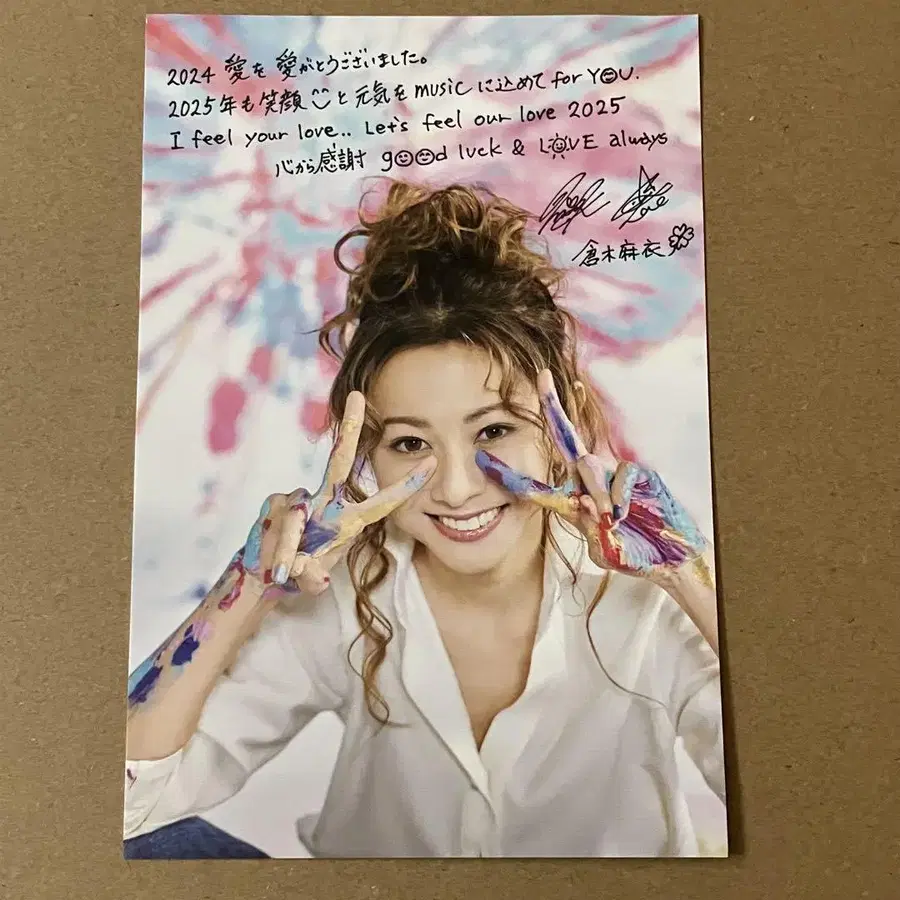 2024 愛を 愛がとうございました。
2025年も笑顔と元気をmusicに込めて for YOU.
I feel your love.. Let's feel our love 2025
心から感謝 good luck & LOVE always
倉木麻衣